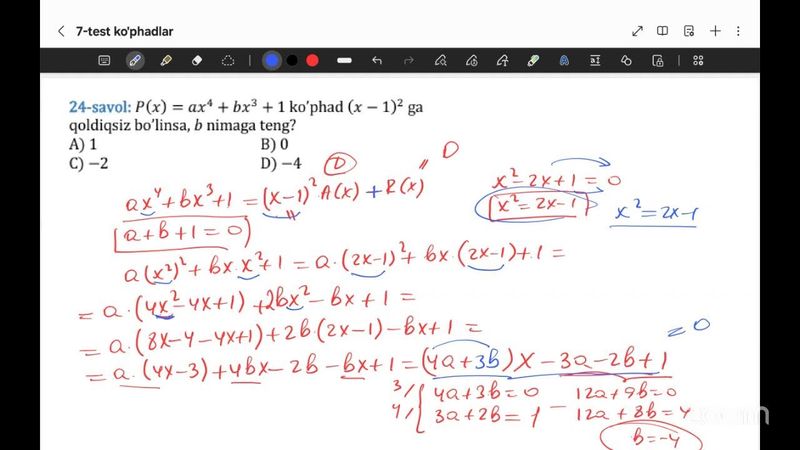 7-test ko'phadlar
24-savol: P(x) = ax⁴ + bx³ + 1 ko'phad (x − 1)² ga
qoldiqsiz bo'linsa, b nimaga teng?
A) 1 B) 0
C) −2 D) −4 D
ax⁴+bx³+1 = (x−1)²·A(x) + R(x) " 0
a+b+1=0
x²−2x+1=0
x²=2x−1
x²=2x−1
a(x²)²+bx·x²+1 = a·(2x−1)²+bx·(2x−1)+1=
= a·(4x²−4x+1)+2bx²−bx+1=
= a·(8x−4−4x+1)+2b·(2x−1)−bx+1=
= a·(4x−3)+4bx−2b−bx+1=(4a+3b)x−3a−2b+1 =0
3/ { 4a+3b=0 − 12a+9b=0
4/ { 3a+2b=1 12a+8b=4
b=−4